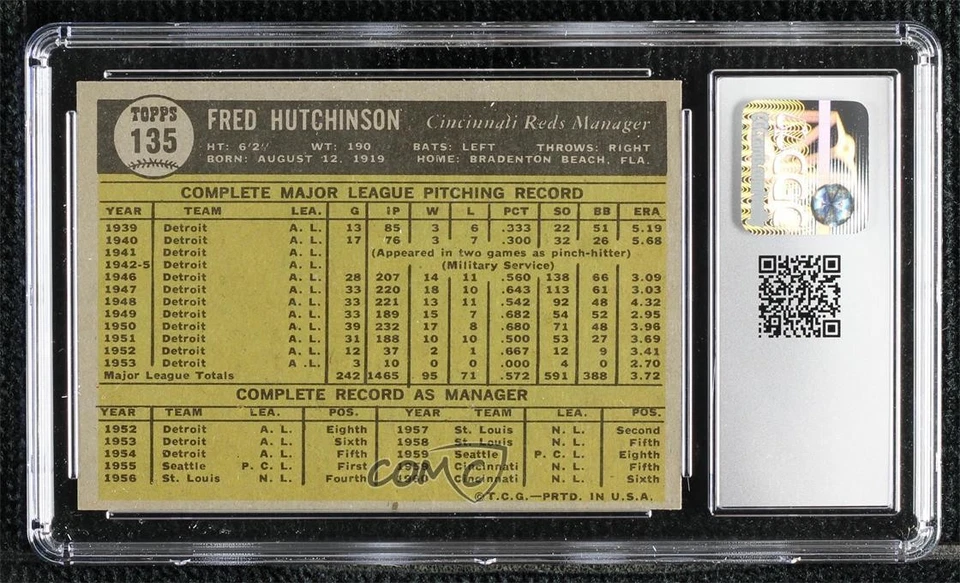 TOPPS
135
FRED HUTCHINSON Cincinnati Reds Manager
HT: 6'2½" WT: 190 BATS: LEFT THROWS: RIGHT
BORN: AUGUST 12, 1919 HOME: BRADENTON BEACH, FLA.
COMPLETE MAJOR LEAGUE PITCHING RECORD
YEAR TEAM LEA. G IP W L PCT SO BB ERA
1939 Detroit A. L. 13 85 3 6 .333 22 51 5.19
1940 Detroit A. L. 17 76 3 7 .300 32 26 5.68
1941 Detroit A. L. (Appeared in two games as pinch-hitter)
1942-5 Detroit A. L. (Military Service)
1946 Detroit A. L. 28 207 14 11 .560 138 66 3.09
1947 Detroit A. L. 33 220 18 10 .643 113 61 3.03
1948 Detroit A. L. 33 221 13 11 .542 92 48 4.32
1949 Detroit A. L. 33 189 15 7 .682 54 52 2.95
1950 Detroit A. L. 39 232 17 8 .680 71 48 3.96
1951 Detroit A. L. 31 188 10 10 .500 53 27 3.69
1952 Detroit A. L. 12 37 2 1 .667 12 9 3.41
1953 Detroit A .L. 3 10 0 0 .000 4 0 2.70
Major League Totals 242 1465 95 71 .572 591 388 3.72
COMPLETE RECORD AS MANAGER
YEAR TEAM LEA. POS. YEAR TEAM LEA. POS.
1952 Detroit A. L. Eighth 1957 St. Louis N. L. Second
1953 Detroit A. L. Sixth 1958 St. Louis N. L. Fifth
1954 Detroit A. L. Fifth 1959 Seattle P. C. L. Eighth
1955 Seattle P. C. L. First 1959 Cincinnati N. L. Fifth
1956 St. Louis N. L. Fourth 1960 Cincinnati N. L. Sixth
COMC
©T.C.G.—PRTD. IN U.S.A.